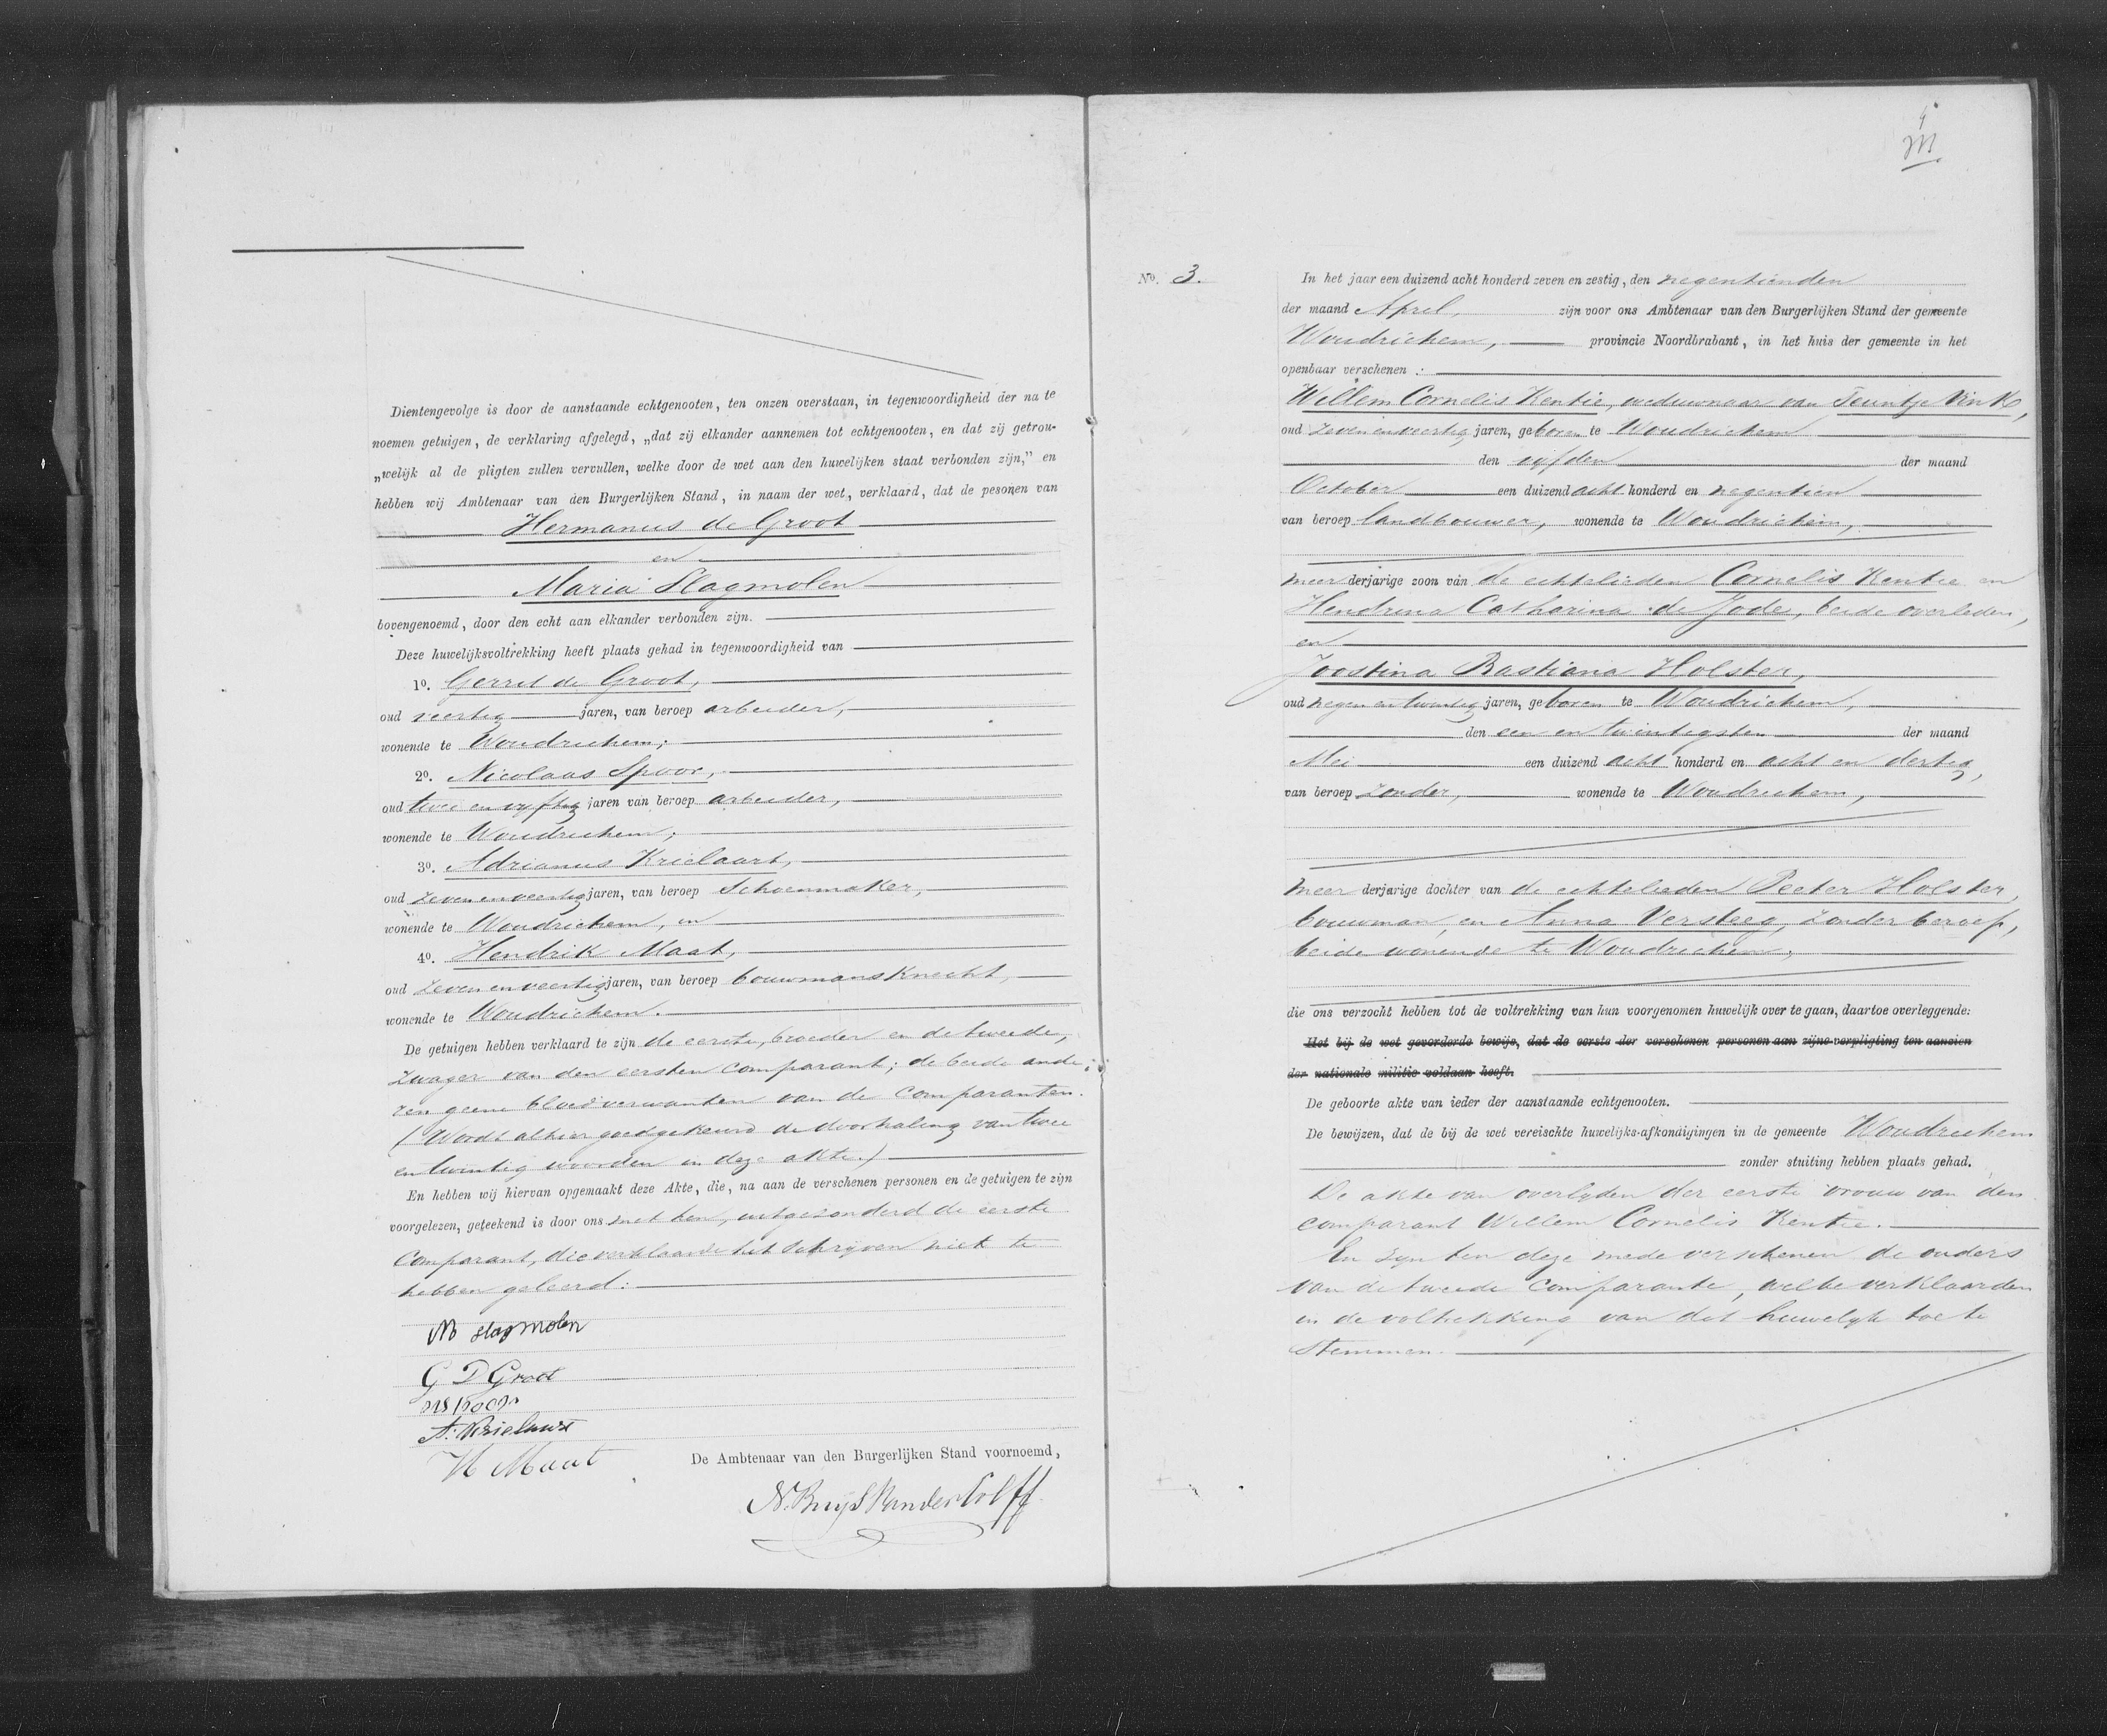 Dientengevolge is door de aanstaande echtgenooten, ten onzen overstaan, in tegenwoordigheid der na te
noemen getuigen, de verklaring afgelegd, „dat zij elkander aannemen tot echtgenooten, en dat zij getrou-
„welijk al de pligten zullen vervullen, welke door de wet aan den huwelijken staat verbonden zijn,” en
hebben wij Ambtenaar van den Burgerlijken Stand, in naam der wet, verklaard, dat de pesonen van
Hermanus de Groot
en
Maria Slagmolen
bovengenoemd, door den echt aan elkander verbonden zijn.
Deze huwelijksvoltrekking heeft plaats gehad in tegenwoordigheid van
1o. Gerret de Groot,
oud veertig jaren, van beroep arbeider,
wonende te Woudrichem;
2o. Nicolaas Spoor,
oud twee en vyftig jaren van beroep arbeider,
wonende te Woudrichem;
3o. Adrianus Krielaart,
oud zeven en veertig jaren, van beroep Schoenmaker,
wonende te Woudrichem, en
4o. Hendrik Maat,
oud zeven en veertig jaren, van beroep bouwmansknecht,
wonende te Woudrichem.
De getuigen hebben verklaard te zijn de eerste, broeder en de tweede,
zwager van den eersten comparant; de beide ande
ren geene bloedverwanten van de comparanten.
(Wordt alhier goedgekeurd de doorhaling van twee
en twintig woorden in deze akte.)
En hebben wij hiervan opgemaakt deze Akte, die, na aan de verschenen personen en de getuigen te zijn
voorgelezen, geteekend is door ons met hen, uitgezonderd de eerste
Comparant, die verklaarde het schrijven niet te
hebben geleerd:
M Slagmolen
G D Groot
N Spoor
A: Krielaart
H Maat
De Ambtenaar van den Burgerlijken Stand voornoemd,
N. Buijs van der Colff
4
No. 3.
In het jaar een duizend acht honderd zeven en zestig, den negentienden
der maand April, zijn voor ons Ambtenaar van den Burgerlijken Stand der gemeente
Woudrichem, provincie Noordbrabant, in het huis der gemeente in het
openbaar verschenen :
Willem Cornelis Kentie, weduwnaar van Teuntje Vink,
oud zeven en veertig jaren, geboren te Woudrichem
den vijfden der maand
October een duizend acht honderd en negentien
van beroep landbouwer, wonende te Woudrichem,
meer derjarige zoon van de echtelieden Cornelis Kentie en
Hendrina Catharina de Jode, beide overleden,
en
Joostina Bastiana Holster,
oud negen en twintig jaren, geboren te Woudrichem,
den een en twintigsten der maand
Mei een duizend acht honderd en acht en dertig,
van beroep zonder, wonende te Woudrichem,
meer derjarige dochter van de echtelieden Peeter Holster,
bouwman, en Anna Versteeg, zonder beroep,
beide wonende te Woudrichem,
die ons verzocht hebben tot de voltrekking van hun voorgenomen huwelijk over te gaan, daartoe overleggende:
Het bij de wet gevorderde bewijs, dat de eerste der verschenen personen aan zijne verpligting ten aanzien
der nationale militie voldaan heeft.
De geboorte akte van ieder der aanstaande echtgenooten.
De bewijzen, dat de bij de wet vereischte huwelijks-afkondigingen in de gemeente Woudrichem
zonder stuiting hebben plaats gehad.
De akte van overlyden der eerste vrouw van den
comparant Willem Cornelis Kentie.
En zyn ten deze mede verschenen de ouders
van de tweede Comparante, welke verklaarden
in de voltrekking van dat huwelyk toe te
stemmen.